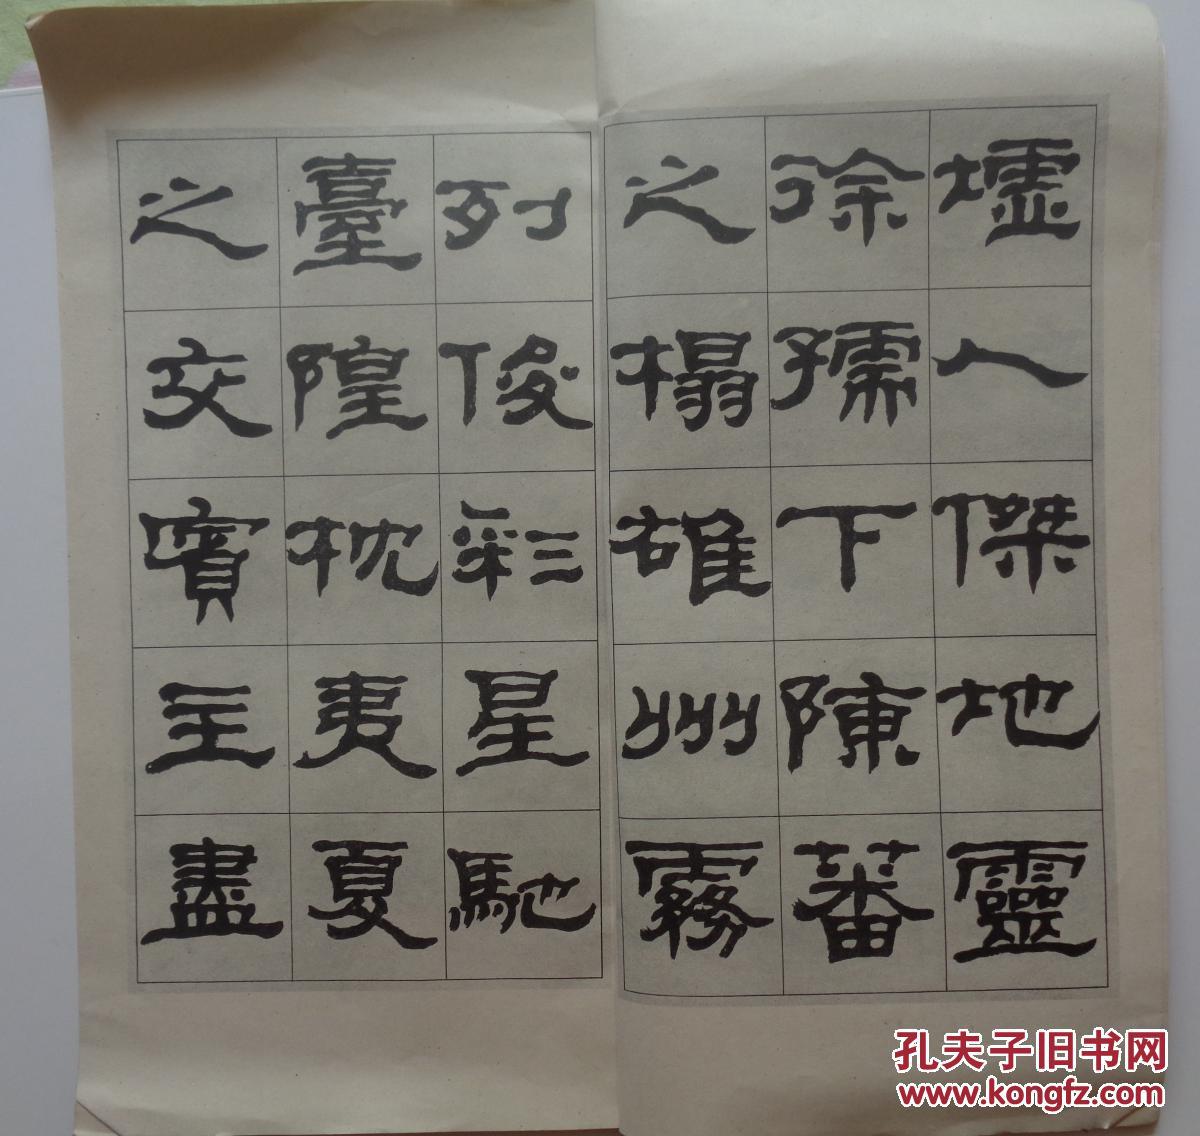 墟人傑地靈
徐孺下陳蕃
之榻雄州霧
列俊彩星馳
臺隍枕夷夏
之交賓主盡
孔夫子旧书网
www.kongfz.com